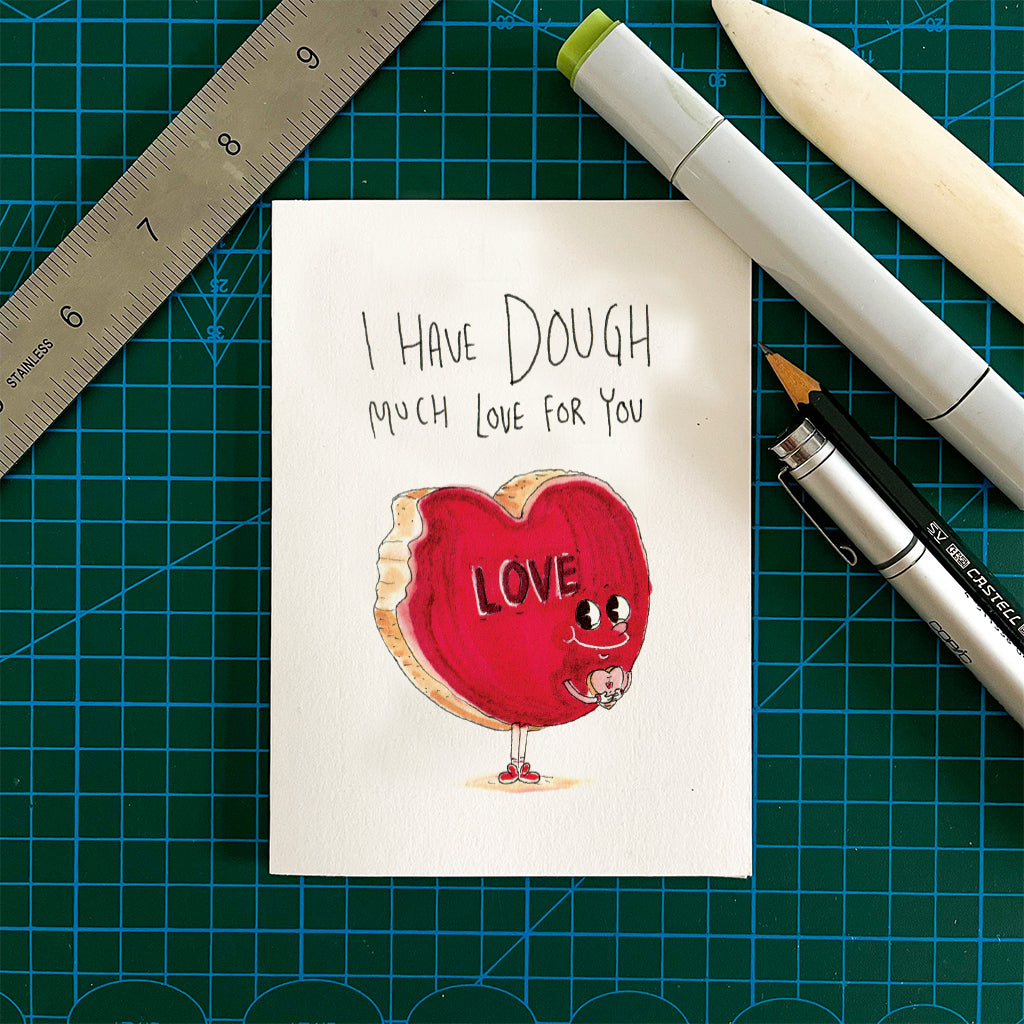 I HAVE DOUGH
MUCH LOVE FOR YOU
LOVE
9
8
7
6
STAINLESS
SV
CASTELL
copic